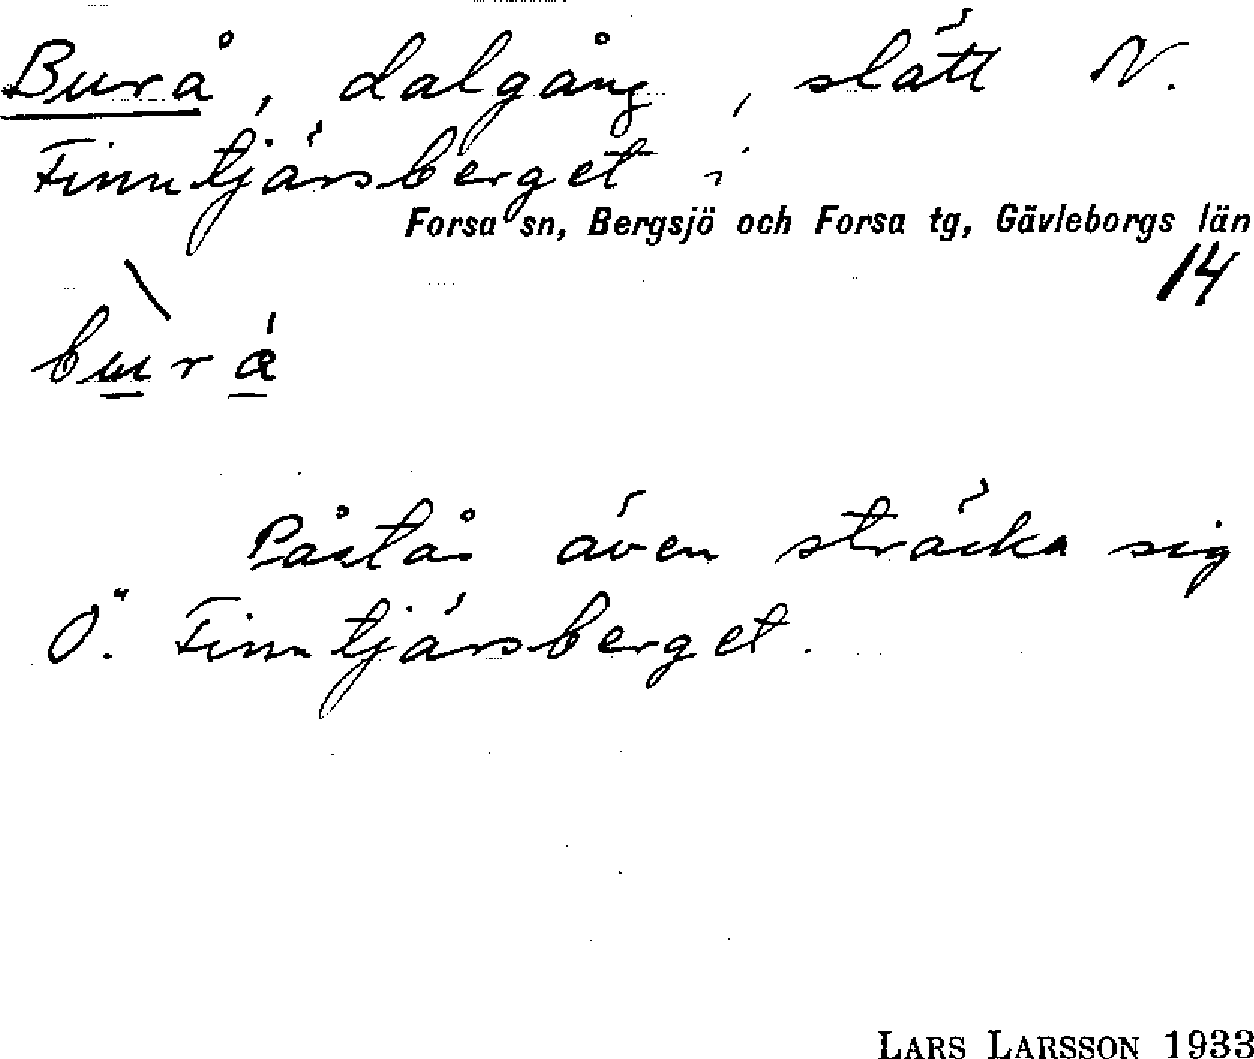 Burå, dalgång, slätt N.
Finntjärsberget i
Forsa sn, Bergsjö och Forsa tg, Gävleborgs län
14
Påstås även sträcka sig
Ö. Finntjärsberget.
LARS LARSSON 1933